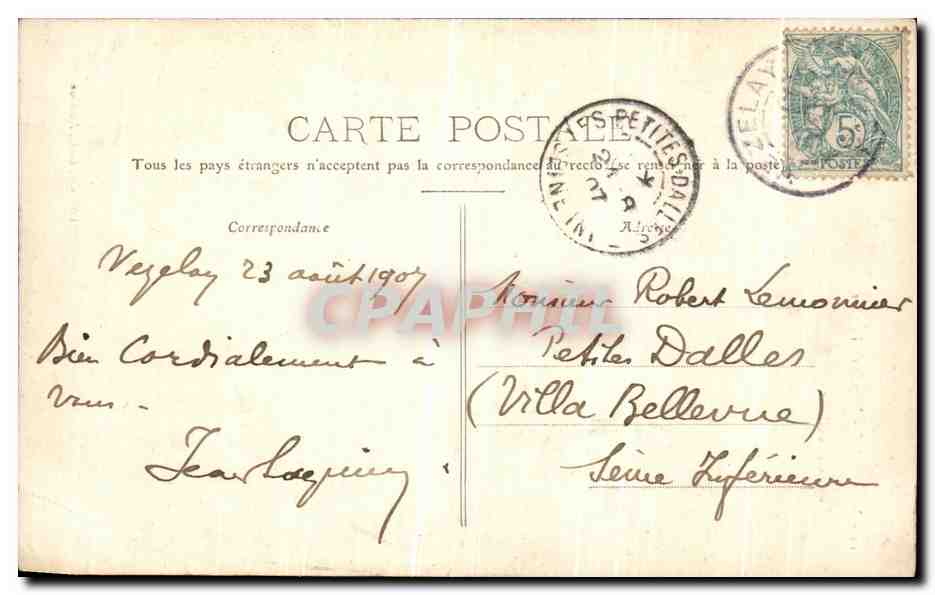 CARTE POSTALE
Tous les pays étrangers n'acceptent pas la correspondance au recto (se renseigner à la poste)
Correspondance
Adresse
Vezelay 23 août 1907
Bien Cordialement à
vous -
Jean
Monsieur Robert Lemonnier
Petites Dalles
(Villa Bellevue)
Seine Inférieure
LES PETITES-DALLES
ZELAY
5c
POSTE
CPAPHIL